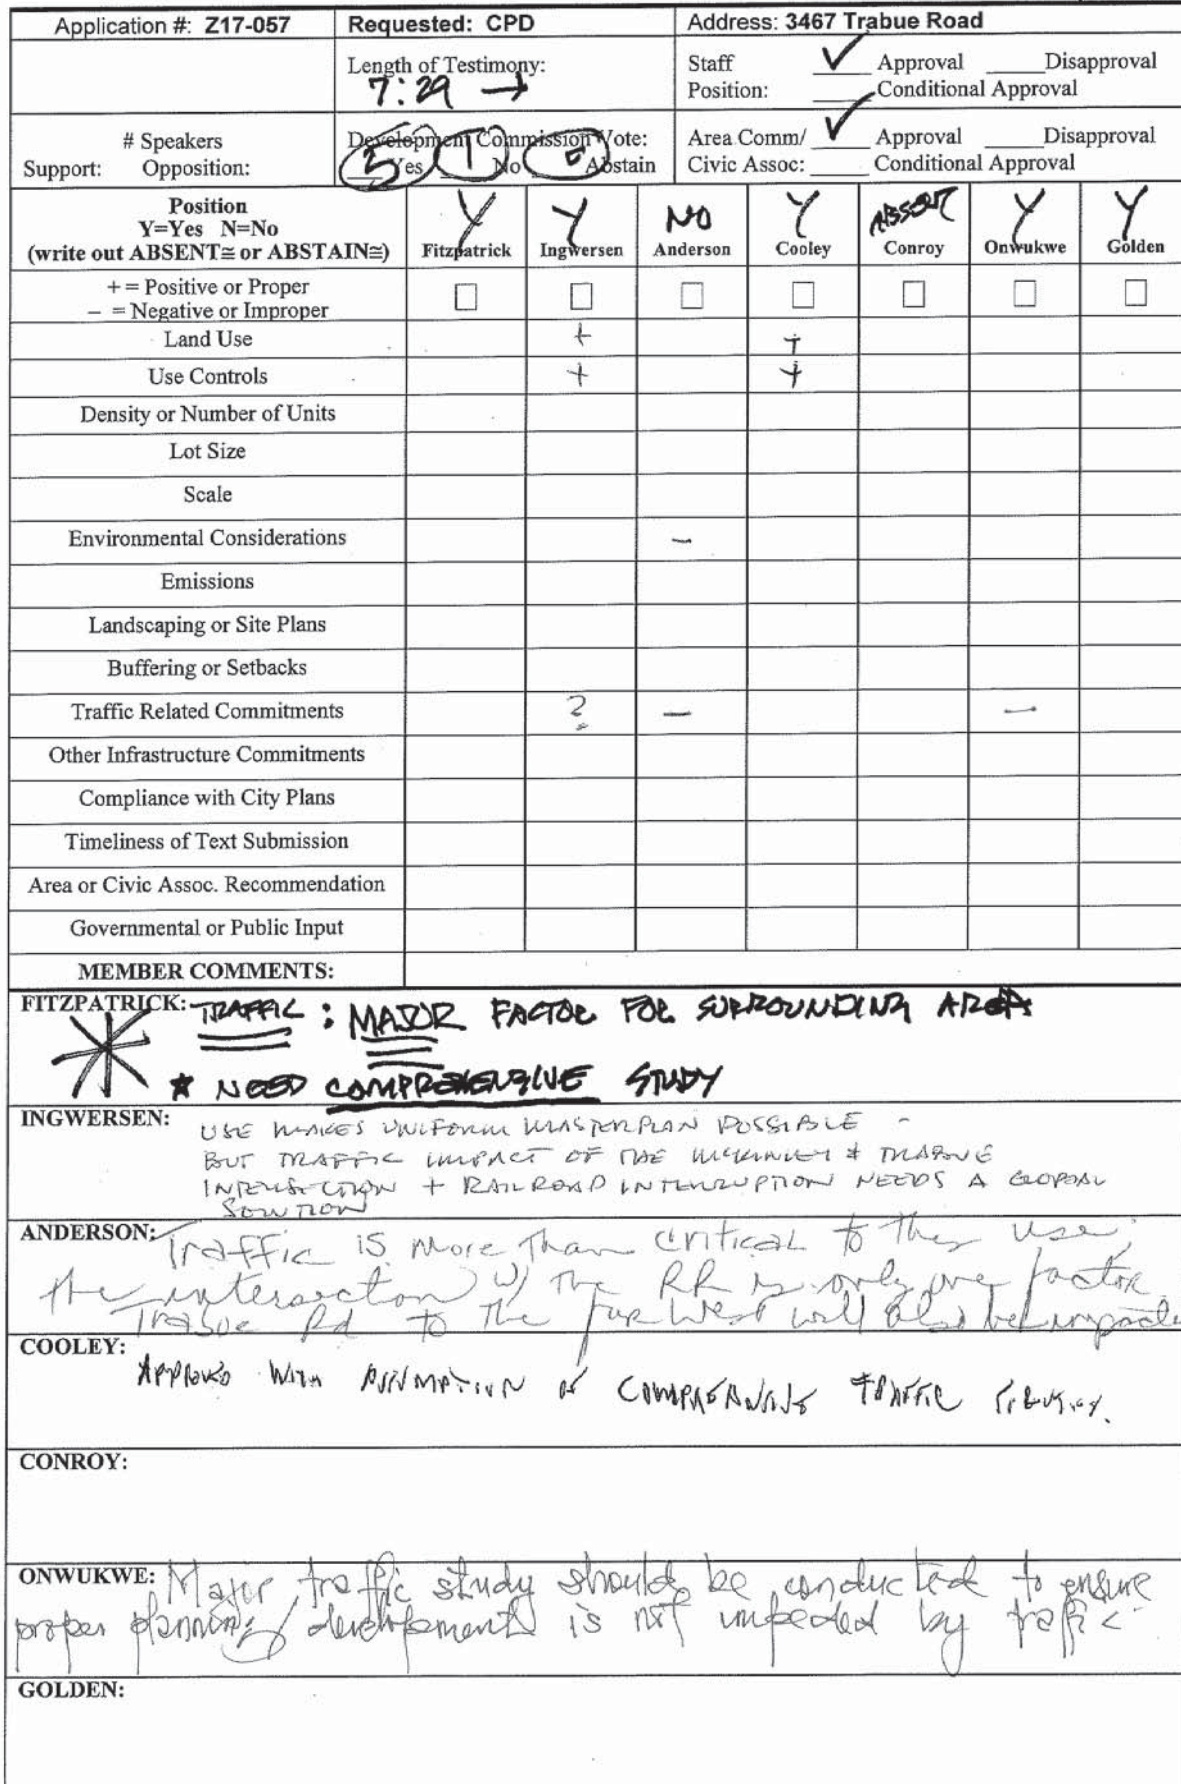 Application #: Z17-057 Requested: CPD Address: 3467 Trabue Road
Length of Testimony:
7:29 →
Staff ✓ Approval ____ Disapproval
Position: ____ Conditional Approval
# Speakers
Support: Opposition:
Development Commission Vote:
5 Yes 1 No 0 Abstain
Area Comm/ ✓ Approval ____ Disapproval
Civic Assoc: ____ Conditional Approval
Position
Y=Yes N=No
(write out ABSENT≅ or ABSTAIN≅)
Y Y NO Y ABSENT Y Y
Fitzpatrick Ingwersen Anderson Cooley Conroy Onwukwe Golden
+ = Positive or Proper
− = Negative or Improper
☐ ☐ ☐ ☐ ☐ ☐ ☐
Land Use + +
Use Controls + +
Density or Number of Units
Lot Size
Scale
Environmental Considerations −
Emissions
Landscaping or Site Plans
Buffering or Setbacks
Traffic Related Commitments ? − −
Other Infrastructure Commitments
Compliance with City Plans
Timeliness of Text Submission
Area or Civic Assoc. Recommendation
Governmental or Public Input
MEMBER COMMENTS:
FITZPATRICK: TRAFFIC : MAJOR FACTOR FOR SURROUNDING AREA
* NEED COMPREHENSIVE STUDY
INGWERSEN: USE MAKES UNIFORM MASTERPLAN POSSIBLE -
BUT TRAFFIC IMPACT OF THE MCKINLEY & TRABUE
INTERSECTION + RAILROAD INTERRUPTION NEEDS A GLOBAL
SOLUTION
ANDERSON: Traffic is more than critical to this use;
the intersection w/ the RR is only one factor.
Trabue Rd to the far West will also be impacte
COOLEY:
APPROVED WITH ASSUMPTION OF COMPREHENSIVE TRAFFIC
CONROY:
ONWUKWE: Major traffic study should be conducted to ensure
proper planning/ development is not impeded by traffic.
GOLDEN: